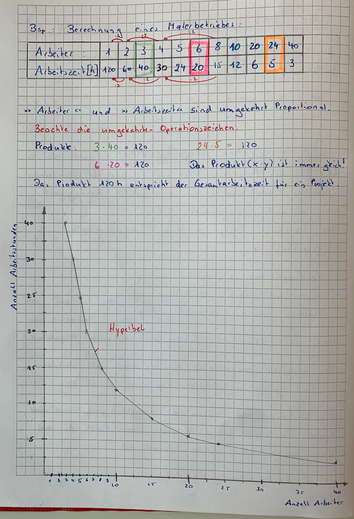 Bsp.: Berechnung eines Malerbetriebes:
Arbeiter 1 2 3 4 5 6 8 10 20 24 40
Arbeitszeit[h] 120 60 40 30 24 20 15 12 6 5 3
"Arbeiter" und "Arbeitszeit" sind umgekehrt Proportional.
Beachte die umgekehrten Operationszeichen.
Produkte: 3·40 = 120 24·5 = 120
6·20 = 120 Das Produkt (x·y) ist immer gleich!
Das Produkt 120h entspricht der Gesamtarbeitszeit für ein Projekt.
Anzahl Arbeitsstunden
40
30
25
20
Hyperbel
15
10
5
1 2 3 4 5 6 7 8 9 10 15 20 25 30 35 40
Anzahl Arbeiter